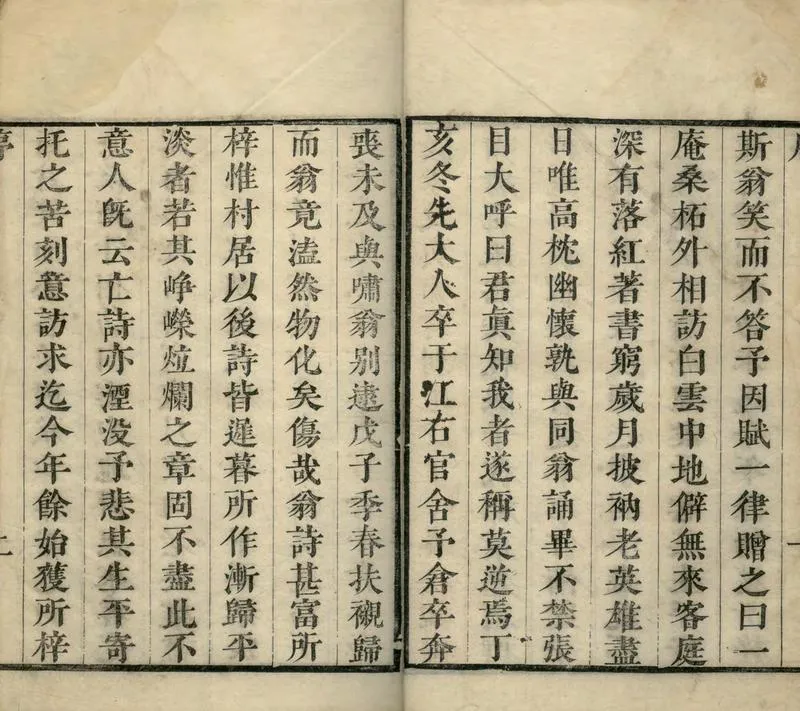 斯翁笑而不答予因賦一律贈之曰一
庵桑柘外相訪白雲中地僻無來客庭
深有落紅著書窮歲月披衲老英雄盡
日唯高枕幽懷孰與同翁誦畢不禁張
目大呼曰君眞知我者遂稱莫逆焉丁
亥冬先大人卒于江右官舍予倉卒奔
喪未及與嘯翁别逮戊子季春扶櫬歸
而翁竟溘然物化矣傷哉翁詩甚富所
梓惟村居以後詩皆遲暮所作漸歸平
淡者若其崢嶸炫爛之章固不盡此不
意人旣云亡詩亦湮没予悲其生平寄
托之苦刻意訪求迄今年餘始獲所梓